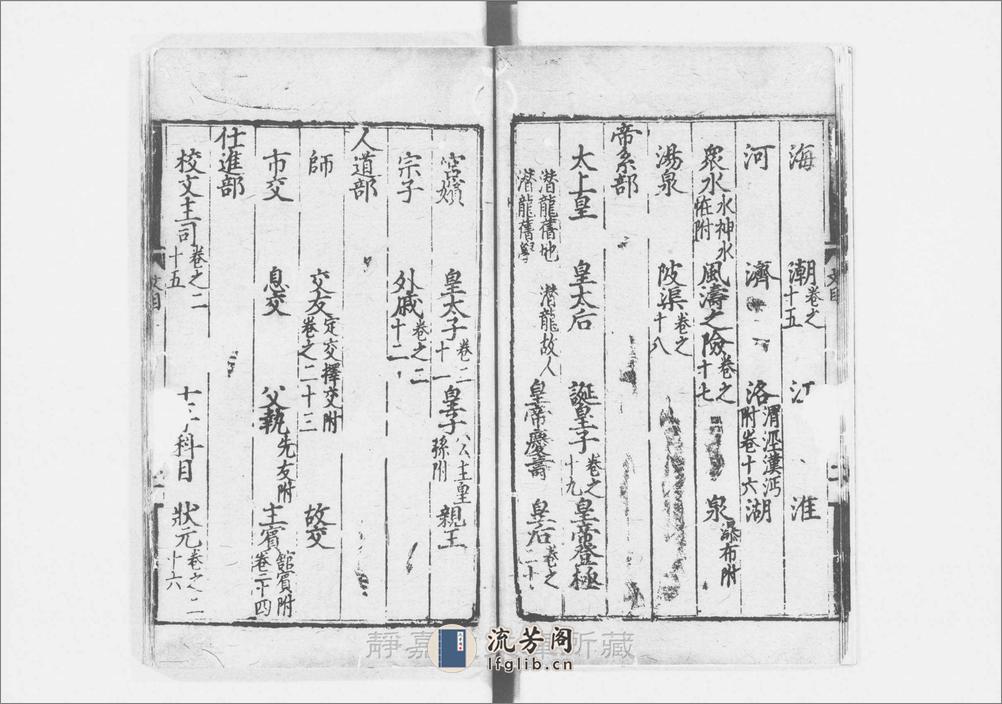 海 潮卷之十五 江 淮
河 濟 洛渭涇漢沔附卷十六 湖
衆水水神水恠附 風濤之險卷之十七 泉瀑布附
湯泉 陂渠卷之十八
帝系部
太上皇 皇太后 誕皇子卷之十九 皇帝登極
潛龍舊地 潛龍舊學 潛龍故人 皇帝慶壽 皇后卷之二十
宮嬪 皇太子卷二十一 皇子公主皇孫附 親王
宗子 外戚卷之二十二
人道部
師 交友定交擇交附卷之二十三 故交
市交 息交 父執先友附 主賓館賓附卷二十四
仕進部
校文主司卷之二十五 科目 狀元卷之二十六
文目
文目
靜嘉 所藏
流芳阁
lfglib.cn